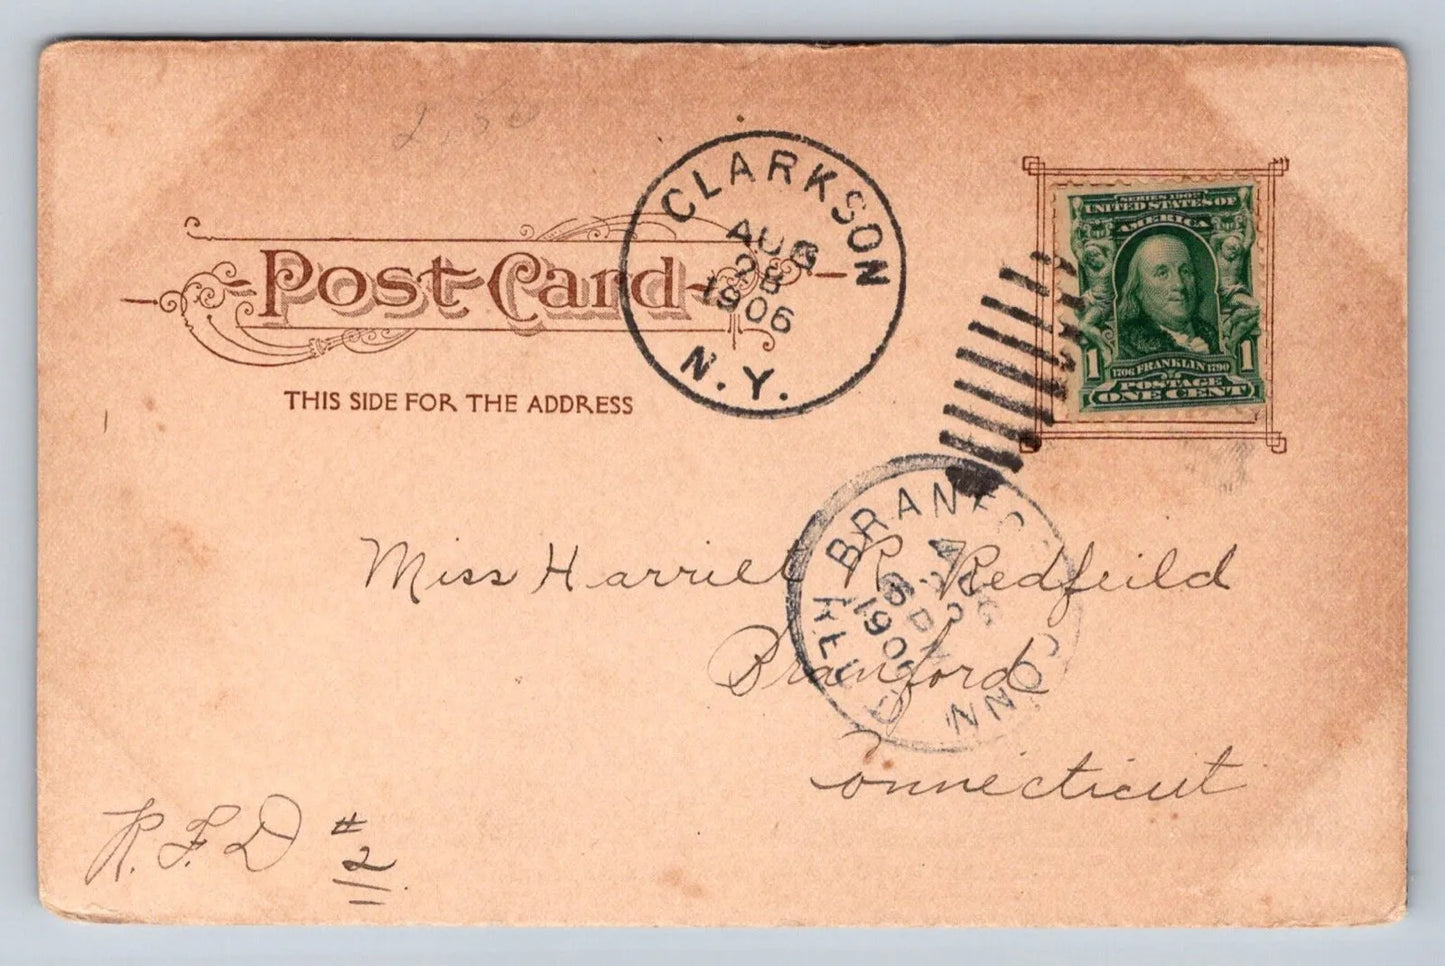 2.50
CLARKSON
AUG
28
1906
N.Y.
Post Card
THIS SIDE FOR THE ADDRESS
SERIES 1902
UNITED STATES OF
AMERICA
1706 FRANKLIN 1790
1 1
POSTAGE
ONE CENT
CONN
1906
Miss Harriet R. Redfeild
Branford
Connecticut
R.F.D #
2